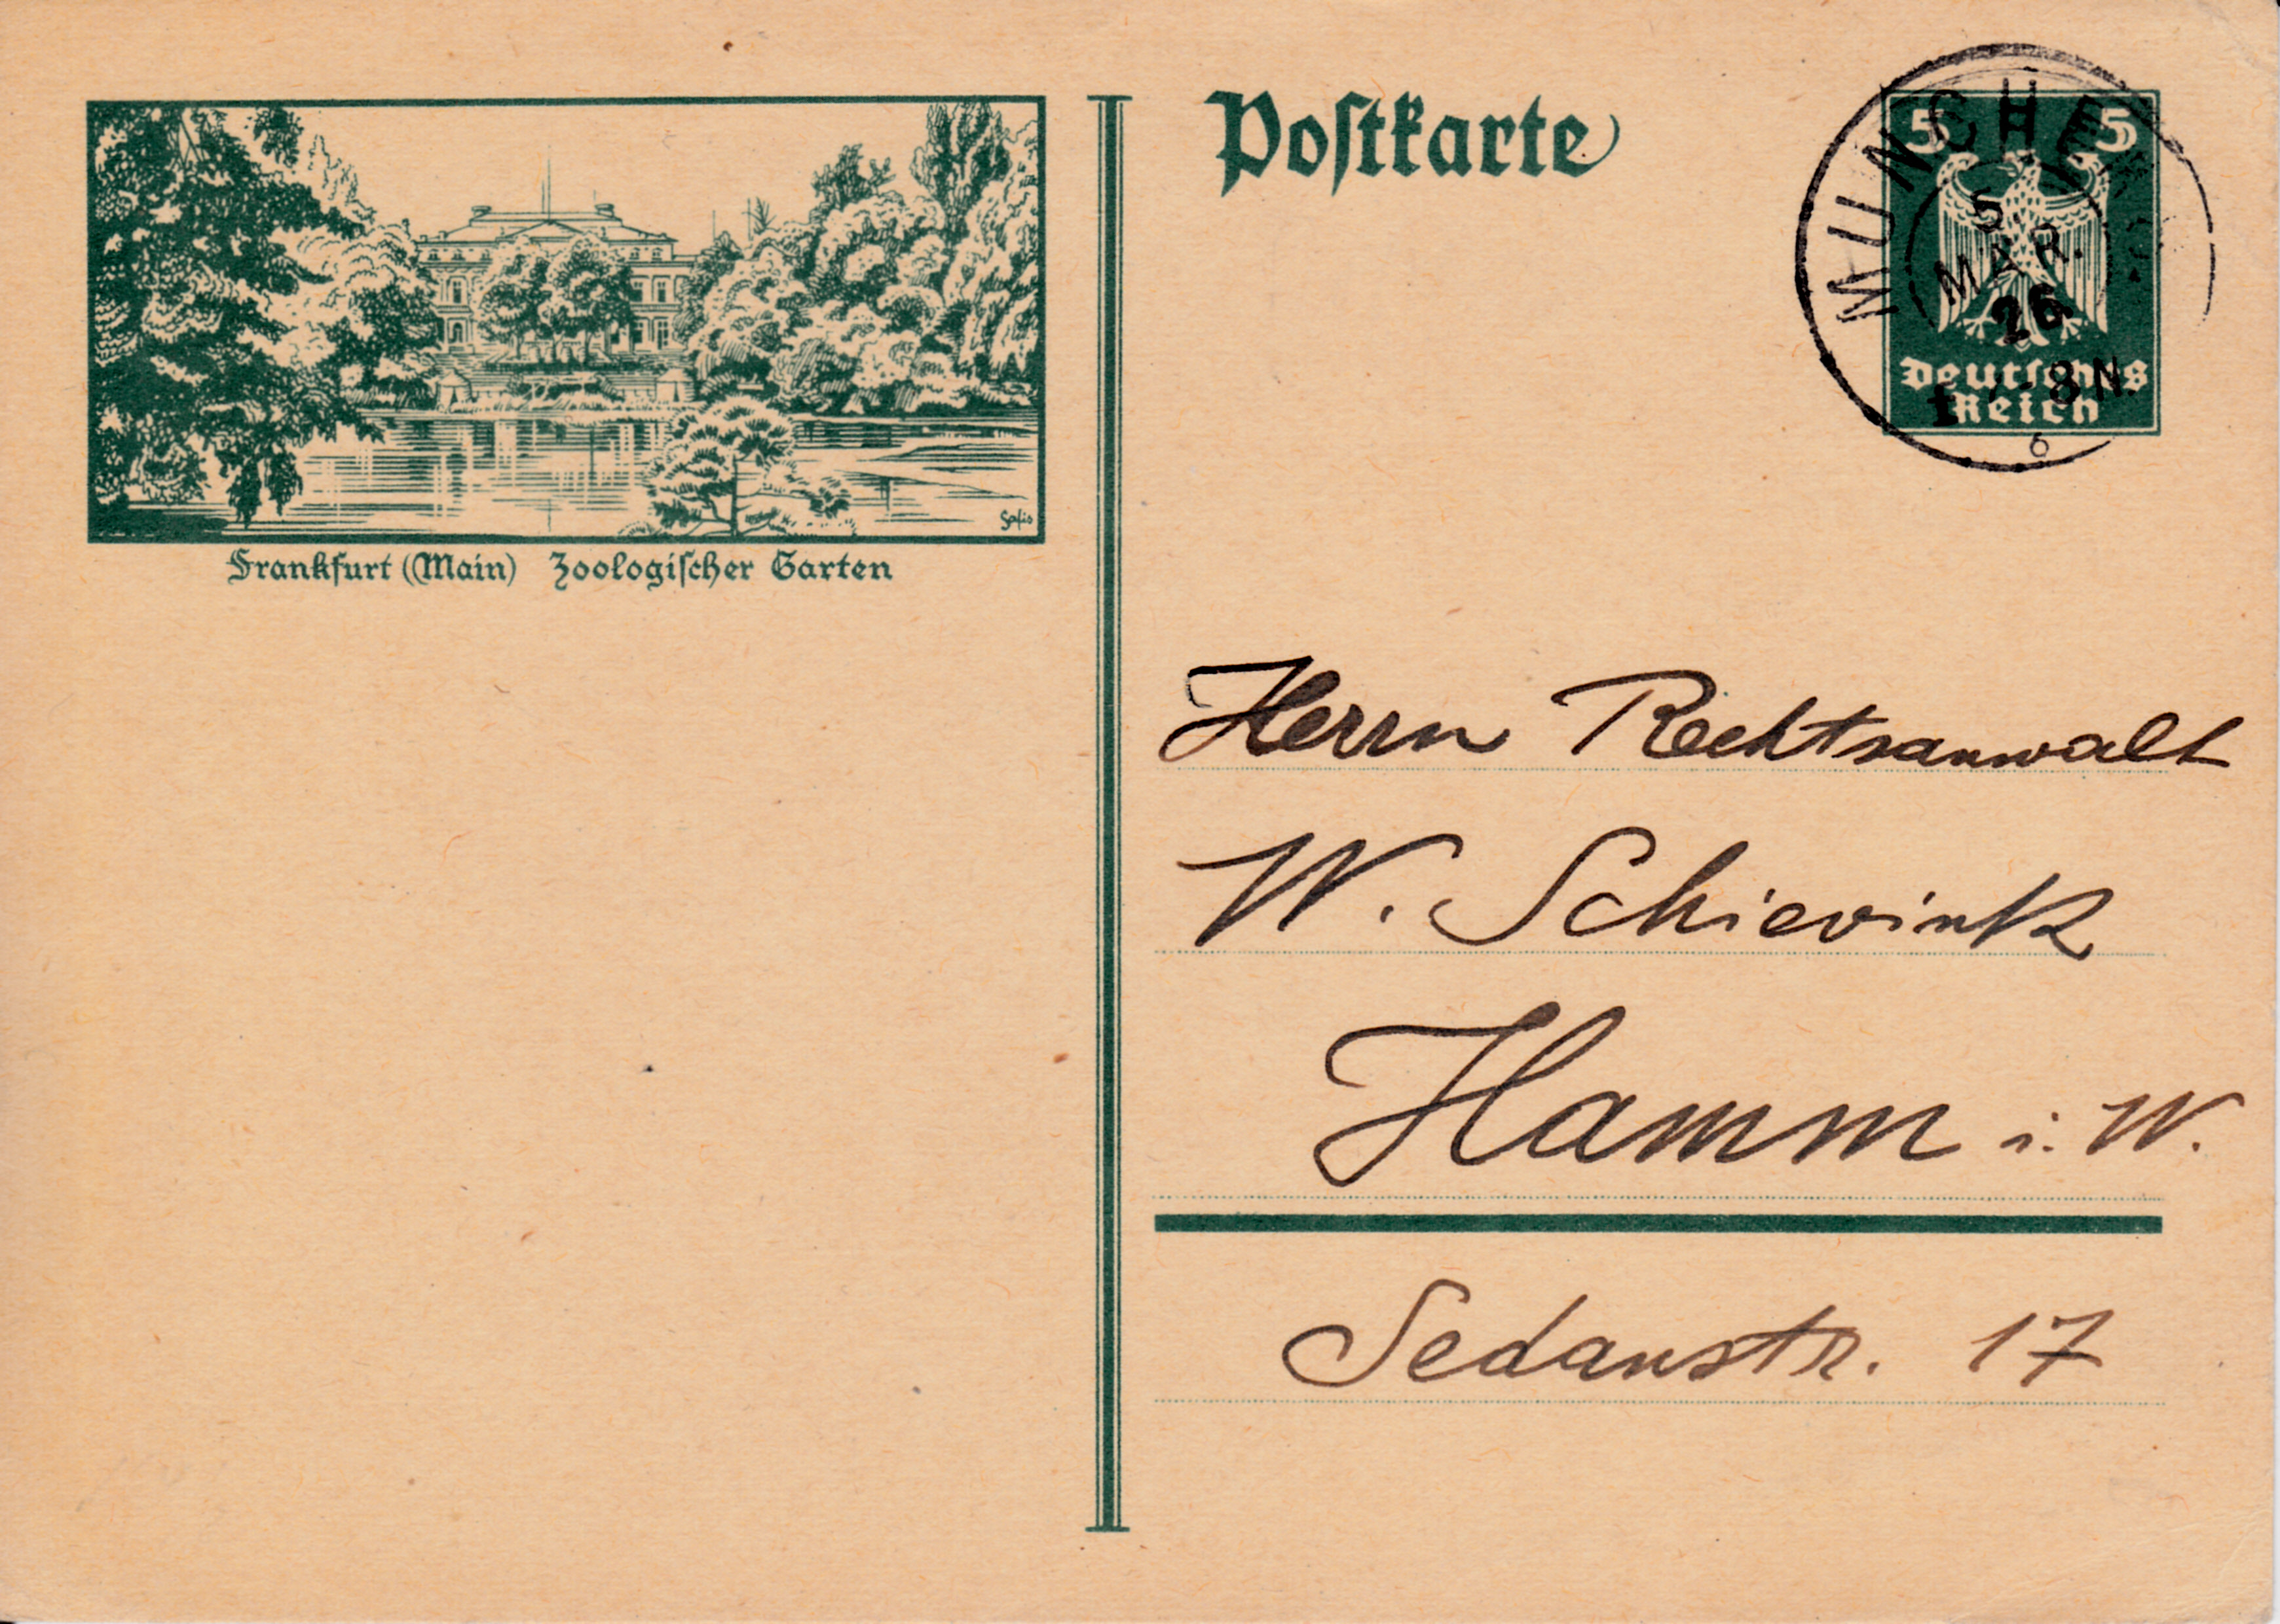 Poſtkarte
5 5
Deutſches
Reich
MÜNCHEN
5.
MAR.
26
-8 N.
Frankfurt (Main) Zoologiſcher Garten
Herrn Rechtsanwalt
W. Schievink
Hamm i. W.
Sedanstr. 17